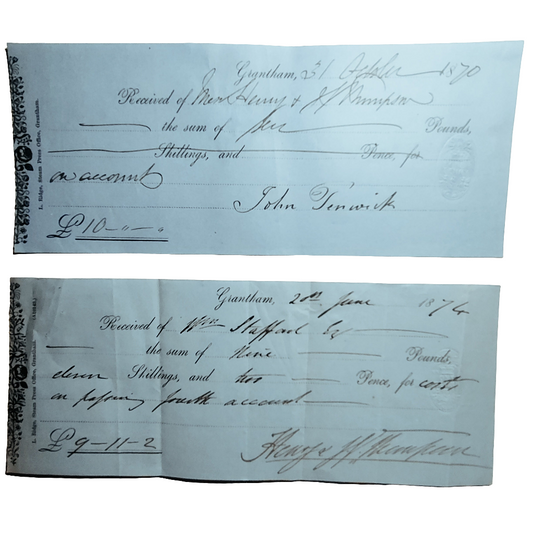 Grantham, 31 October 1870
Received of Messrs Henry & JJ Thompson
the sum of Ten Pounds,
Shillings, and Pence, for
on account
John Fenwick
£10-"-"
L. Ridge, Steam Press Office, Grantham.
Grantham, 20th June 1874
Received of Wm Stafford Esq
the sum of Nine Pounds,
eleven Shillings, and two Pence, for costs
on passing fourth account
£9-11-2
Henry & Thompson
L. Ridge, Steam Press Office, Grantham.